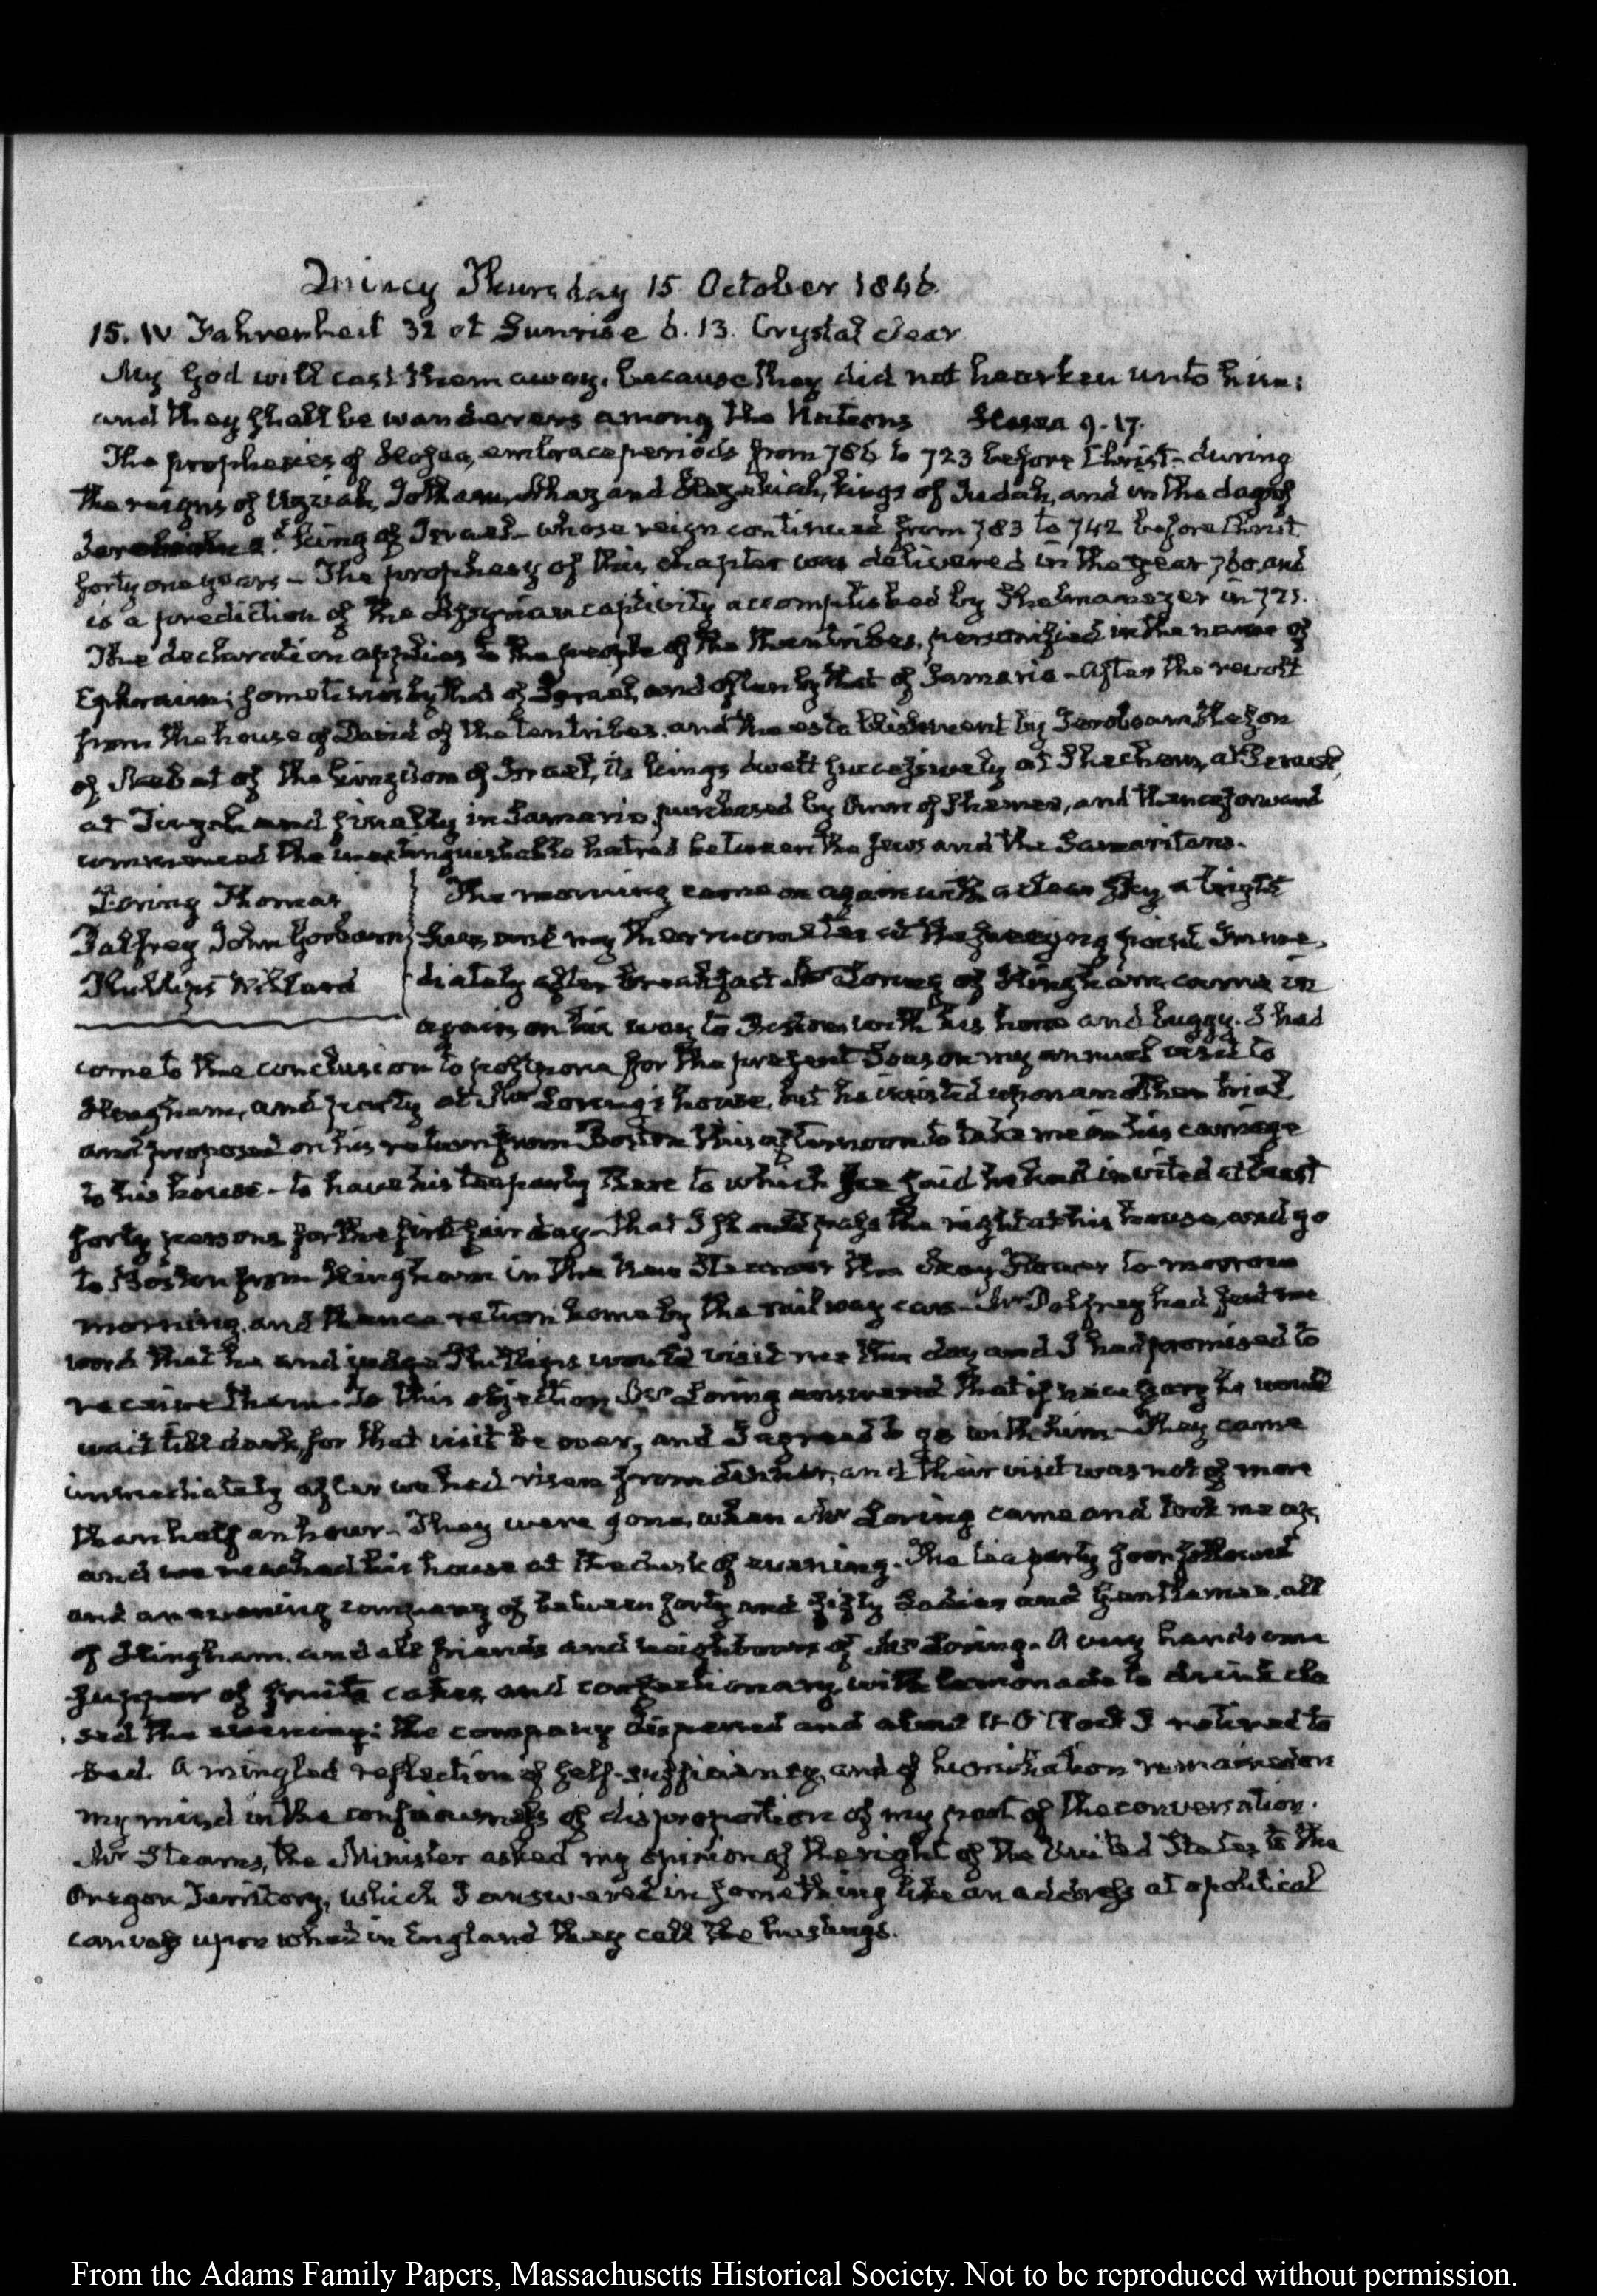 Quincy Thursday 15 October 1846.
15. IV Fahrenheit 32 at Sunrise 6.13. Crystal clear
My God will cast them away, because they did not hearken unto him:
and they shall be wanderers among the Nations Hosea 9.17.
The prophesies of Hosea, embrace periods from 786 to 723 before Christ- during
the reigns of Uzziah, Jotham, Ahaz and Hezekiah, kings of Judah, and in the days of
Jeroboam 2d. king of Israel- whose reign continued from 783 to 742 before Christ
forty one years- The prophesy of this chapter was delivered in the year 760, and
is a prediction of the Assyrian captivity accomplished by Shelmanezer in 723.
The declaration applies to the people of the then tribes, personified in the name of
Ephraim; sometimes by that of Israel, and often by that of Samaria- After the revolt
from the house of David of the ten tribes. and the establishment by Jeroboam the son
of Nebat of the kingdom of Israel, its kings dwelt successively at Shechem, at
at Tirzah and finally in Samaria, purchased by Omri of Shemer, and thenceforward
commenced the inextinguishable hatred between the Jews and the Samaritans.
Loring Thomas
Palfrey John Gorham
Phillips Willard
The morning came on again with a clear sky a bright
Sun, and my thermometer at the freezing point Imme-
diately after breakfast Mr Loring of Hingham came in
again on his way to Boston with his horse and buggy. I had
come to the conclusion to postpone for the present Season my annual visit to
Hingham, and party at Mr Loring's house, but he insisted upon another trial
and proposed on his return from Boston this afternoon to take me in his carriage
to his house- to have his tea party there to which he said he had invited at least
forty persons for the first fair day- That I should pass the night at his house, and go
to Boston from Hingham in the new Steamer the May Flower to morrow
morning, and thence return home by the rail way cars- Mr Palfrey had sent me
word that he and judge Phillips would visit me this day and I had promised to
receive them. To this objection Mr Loring answered that if necessary he would
wait till dark, for that visit be over, and I agreed to go with him- They came
immediately after we had risen from dinner, and their visit was not of more
than half an hour- They were gone, when Mr Loring came and took me up,
and we reached his house at the dusk of evening. The tea party soon followed
and an evening company of between forty and fifty Ladies and Gentlemen. all
of Hingham. and all friends and neighbours of Mr Loring. A very handsome
supper of fruits cakes, and confectionary, with lemonade to drink clo
sed the evening: the company dispersed and about 11 O'Clock I retired to
bed. A mingled reflection of self-sufficiency, and of humiliation remained on
my mind in the consciousness of disproportion of my part of the conversation.
Mr Stearns, the Minister asked my opinion of the right of the United States to the
Oregon Territory, which I answered in something like an address at a political
canvass upon what in England they call the hustings.
From the Adams Family Papers, Massachusetts Historical Society. Not to be reproduced without permission.